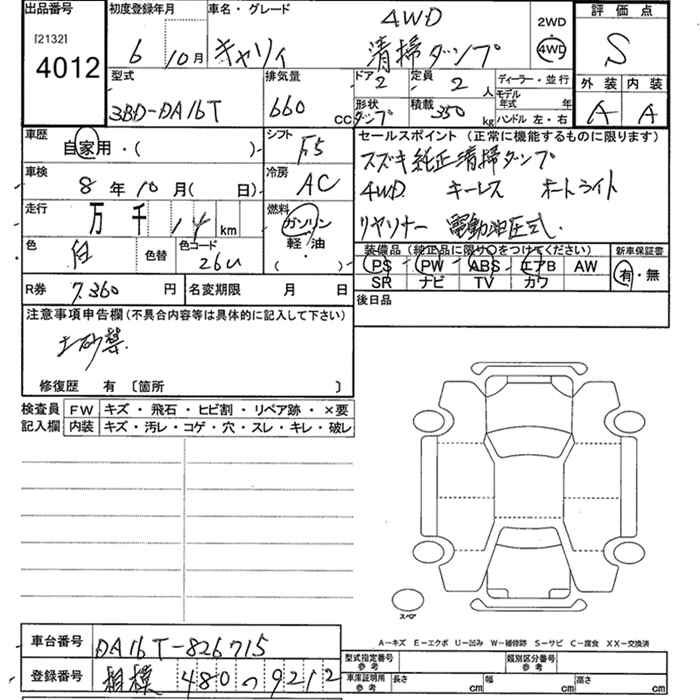 出品番号 初度登録年月 車名・グレード 4WD 2WD 評価点
[2132] 4012 6 10月 キャリイ 清掃ダンプ 4WD S
型式 排気量 ドア 2 定員 2人 ディーラー・並行 外装 内装
3BD-DA16T 660 CC 形状 ダンプ 積載 350 kg モデル年式 年 A A
ハンドル 左・右
車歴 自家用・( )・ シフト F5 セールスポイント (正常に機能するものに限ります)
スズキ純正清掃ダンプ
車検 8年10月( 日) 冷房 AC 4WD キーレス オートライト
走行 万 千 14 km 燃料 ガソリン リヤソナー 電動油圧式.
軽・油
( )
色 白 色替 色コード 26U 装備品 (純正品に限り○をつけてください) 新車保証書
PS PW ABS エアB AW 有・無
SR ナビ TV カワ
R券 7.360 円 名変期限 月 日 後日品
注意事項申告欄(不具合内容等は具体的に記入して下さい)
土砂禁.
修復歴 有 〔箇所 〕
検査員 FW キズ・飛石・ヒビ割・リペア跡・×要
記入欄 内装 キズ・汚レ・コゲ・穴・スレ・キレ・破レ
スペア
A－キズ E－エクボ U－凹み W－補修跡 S－サビ C－腐食 XX－交換済
車台番号 DA16T-826715 型式指定番号 参考 類別区分番号 参考
登録番号 相模 480 つ 9212 車庫証明用 参考 長さ cm 幅 cm 高さ cm